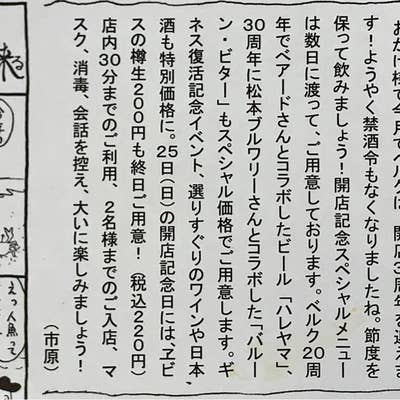 おかげ様で今月でベルクは、開店31周年を迎えま
す！ようやく禁酒令もなくなりましたね。節度を
保って飲みましょう！開店記念スペシャルメニュー
は数日に渡って、ご用意しております。ベルク20周
年でベアードさんとコラボしたビール「ハレヤマ」、
30周年に松本ブルワリーさんとコラボした「バルー
ン・ビター」もスペシャル価格でご用意します。ギ
ネス復活記念イベント、選りすぐりのワインや日本
酒も特別価格に。25日（日）の開店記念日には、ヱビ
スの樽生200円も終日ご用意！（税込220円）
店内30分までのご利用、2名様までのご入店、マ
スク、消毒、会話を控え、大いに楽しみましょう！
（市原）
来る
えっ人魚って